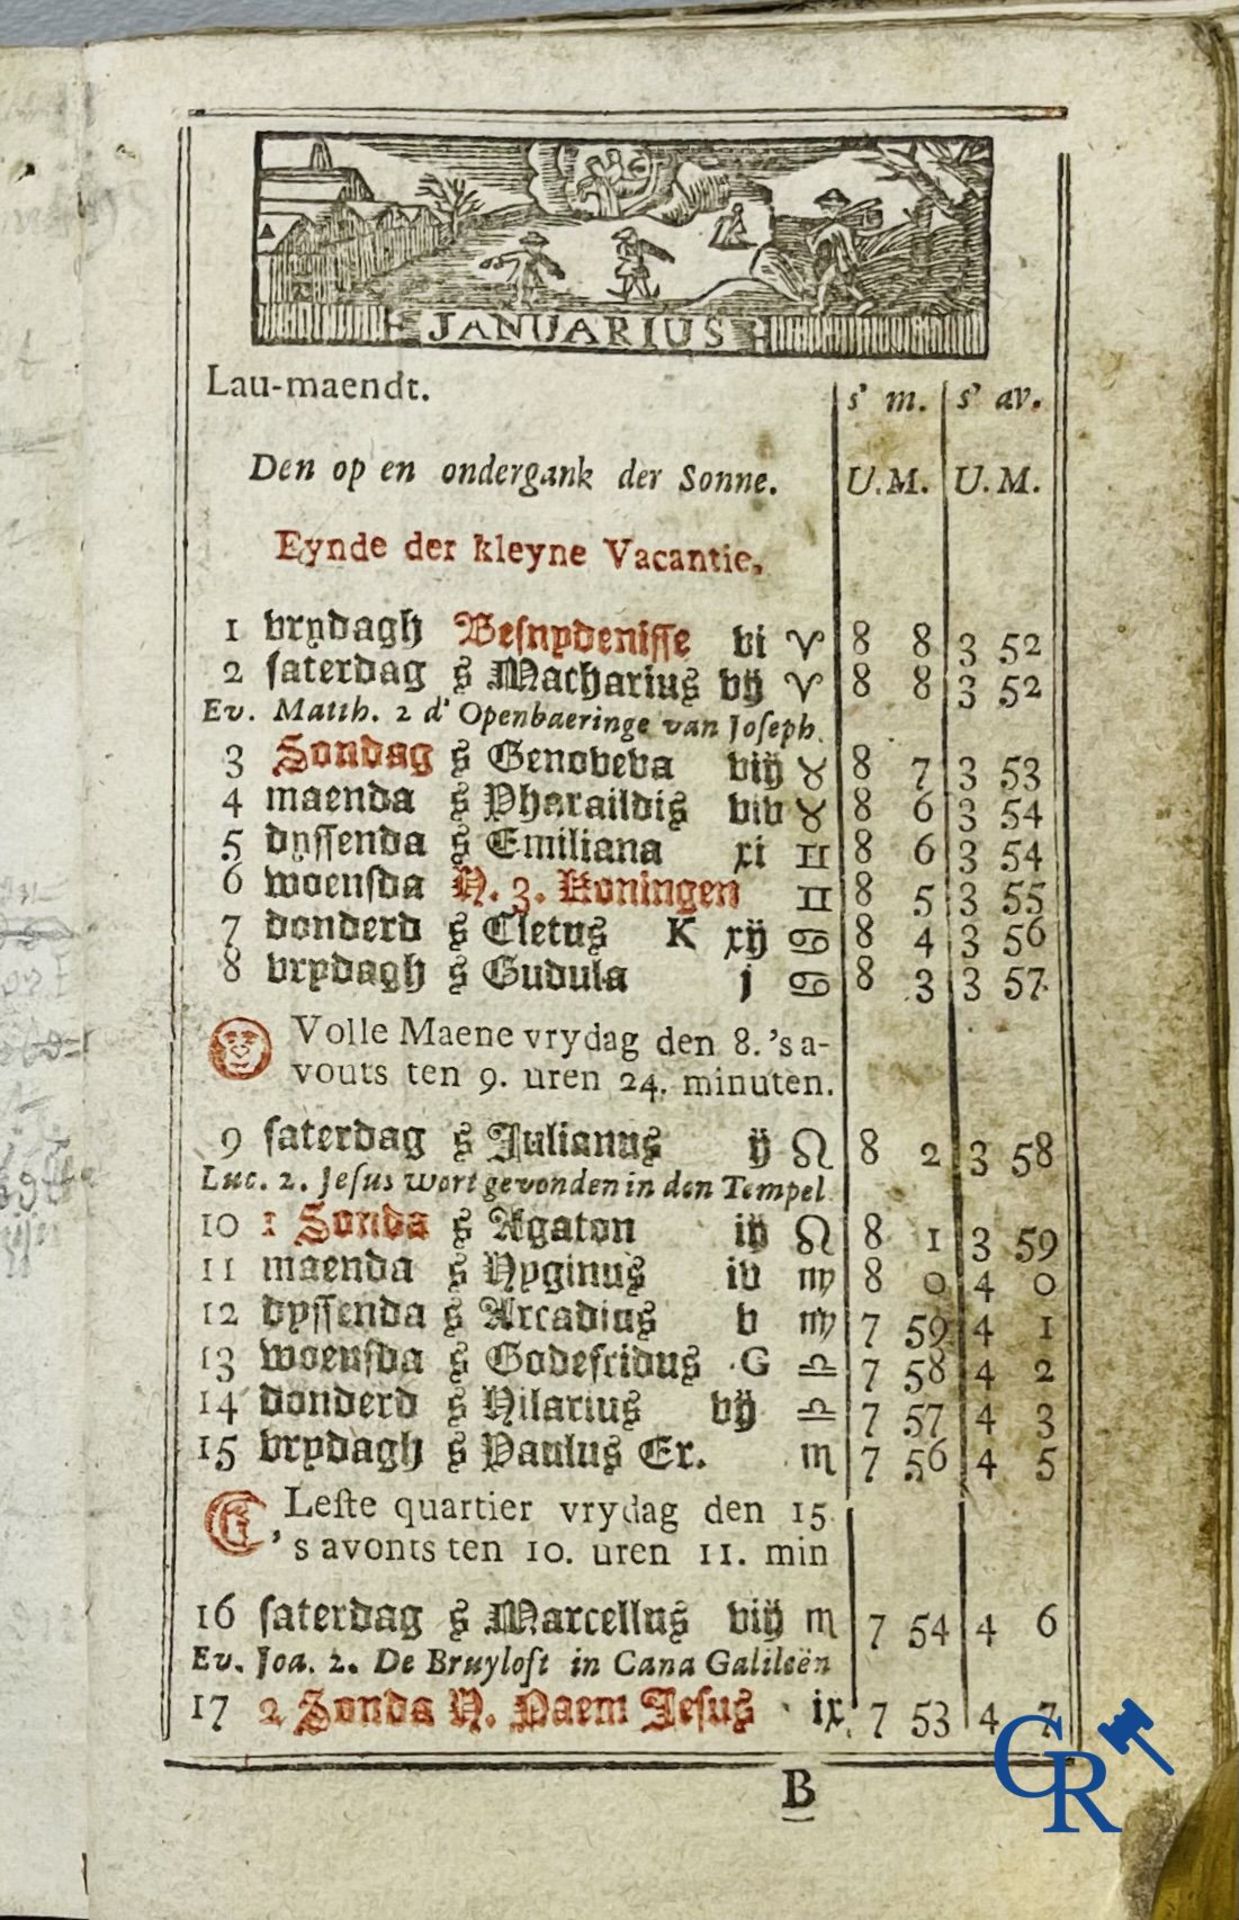 JANUARIUS
Lau-maendt. s' m. s' av.
Den op en ondergank der Sonne. U. M. U. M.
Eynde der kleyne Vacantie,
1 vrydagh Besnydenisse vi ♈ 8 8 3 52
2 saterdag s Macharius vij ♈ 8 8 3 52
Ev. Matth. 2 d' Openbaeringe van Joseph.
3 Sondag s Genoveva viij ♉ 8 7 3 53
4 maenda s Pharaildis viv ♉ 8 6 3 54
5 dyssenda s Emiliana xi ♊ 8 6 3 54
6 woensda H. 3. Koningen ♊ 8 5 3 55
7 donderd s Cletus K xij ♋ 8 4 3 56
8 vrydagh s Gudula j ♋ 8 3 3 57
Volle Maene vrydag den 8. 's a-
vouts ten 9. uren 24. minuten.
9 saterdag s Julianus ij ♌ 8 2 3 58
Luc. 2. Jesus wort gevonden in den Tempel
10 1 Sonda s Agaton iij ♌ 8 1 3 59
11 maenda s Hyginus iv ♍ 8 0 4 0
12 dyssenda s Arcadius v ♍ 7 59 4 1
13 woensda s Godefridus G ♎ 7 58 4 2
14 donderd s Hilarius vij ♎ 7 57 4 3
15 vrydagh s Paulus Er. ♏ 7 56 4 5
Leste quartier vrydag den 15
's avonts ten 10. uren 11. min
16 saterdag s Marcellus viij ♏ 7 54 4 6
Ev. Joa. 2. De Bruyloft in Cana Galileën
17 2 Sonda H. Naem Jesus ix. 7 53 4 7
B
CR